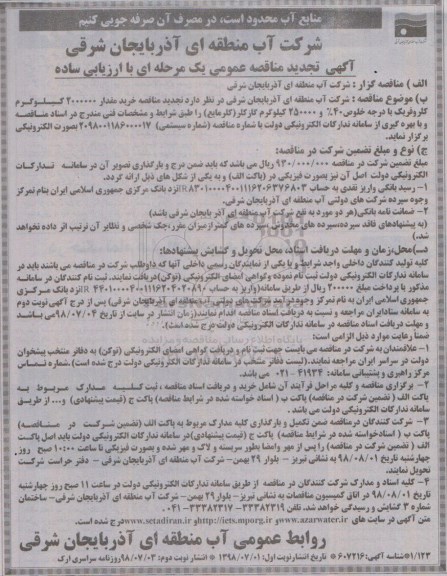 منابع آب محدود است، در مصرف آن صرفه جویی کنیم
شرکت آب منطقه ای آذربایجان شرقی
آگهی تجدید مناقصه عمومی یک مرحله ای با ارزیابی ساده
الف) مناقصه گزار: شرکت آب منطقه ای آذربایجان شرقی
ب) موضوع مناقصه: شرکت آب منطقه ای آذربایجان شرقی در نظر دارد تجدید مناقصه خرید مقدار ۲۰۰۰۰۰۰ کیلوگرم
کلروفریک با درجه خلوص ۴۰٪ و ۲۵۰۰۰۰ کیلوگرم کلرگاز (کلرمایع) را طبق شرایط و مشخصات فنی مندرج در اسناد مناقصه
و با بهره گیری از سامانه تدارکات الکترونیکی دولت با شماره مناقصه (شماره سیستمی) ۲۰۹۸۰۰۱۱۸۶۰۰۰۰۱۷ بصورت الکترونیکی
برگزار نماید.
ج) نوع و مبلغ تضمین شرکت در مناقصه:
مبلغ تضمین شرکت در مناقصه ۹۳۰/۰۰۰/۰۰۰ ریال می باشد که باید ضمن درج و بارگذاری تصویر آن در سامانه تدارکات
الکترونیکی دولت اصل آن نیز بصورت فیزیکی در (پاکت الف) و به یکی از شکل های ذیل ارائه گردد.
۱- رسید بانکی واریز نقدی به حساب نزد بانک مرکزی جمهوری اسلامی ایران بنام تمرکز
وجوه سپرده شرکت های دولتی آب منطقه ای آذربایجان شرقی
۲- ضمانت نامه بانکی (هر دو مورد به نفع شرکت آب منطقه ای آذربایجان شرقی باشد)
(به پیشنهادهای فاقد سپرده، سپرده های مخدوش، سپرده های کمتر از میزان مقرر، چک شخصی و نظایر آن ترتیب اثر داده نخواهد
شد)
د) محل، زمان و مهلت دریافت اسناد، محل تحویل و گشایش پیشنهادها:
کلیه تولید کنندگان داخلی واجد شرایط و یا یکی از نمایندگان رسمی داخلی آنها که داوطلب شرکت در مناقصه می باشند باید در
سامانه تدارکات الکترونیکی دولت ثبت نام نموده و گواهی امضای الکترونیکی (توکن) دریافت نمایند. ثبت نام کنندگان در سامانه
مذکور با پرداخت مبلغ ۲۰۰۰۰۰ ریال از طریق سامانه (واریز به حساب نزد بانک مرکزی
جمهوری اسلامی ایران به نام تمرکز وجوه درآمد شرکت های دولتی آب منطقه ای آذربایجان شرقی) پس از درج آگهی نوبت دوم
به سامانه ستاد ایران مراجعه و نسبت به دریافت اسناد مناقصه اقدام نمایند (زمان انتشار در سایت از تاریخ ۹۸/۰۷/۰۴ می باشد
و مهلت دریافت اسناد مناقصه در سامانه تدارکات الکترونیکی دولت درج شده است).
ضمنا رعایت موارد ذیل الزامی است:
۱- علاقمندان به شرکت در مناقصه می بایست جهت ثبت نام و دریافت گواهی امضای الکترونیکی (توکن) به دفاتر منتخب پیشخوان
دولت در سراسر ایران مراجعه نمایند. (لیست دفاتر منتخب در سامانه تدارکات الکترونیکی دولت درج شده است). شماره تماس
مرکز راهبری و پشتیبانی سامانه: ۴۱۹۳۴-۰۲۱ می باشد.
۲- برگزاری مناقصه و کلیه مراحل فرآیند آن شامل خرید و دریافت اسناد مناقصه، ثبت کلیه مدارک مربوط به
پاکت الف (تضمین شرکت در مناقصه) پاکت ب (اسناد خواسته شده در شرایط مناقصه) پاکت ج (قیمت پیشنهادی) و... از طریق
سامانه تدارکات الکترونیکی دولت می باشد.
۳- شرکت کنندگان در مناقصه ضمن تکمیل و بارگذاری کلیه مدارک مربوط به پاکت الف (تضمین شرکت در مناقصه)
پاکت ب (اسناد خواسته شده در شرایط مناقصه) پاکت ج (قیمت پیشنهادی) در سامانه تدارکات الکترونیکی دولت باید اصل پاکت
الف (تضمین شرکت در مناقصه) را پس از مهر و امضا بطور سربسته و لاک و مهر شده و بصورت فیزیکی تا ساعت ۱۰:۰۰ صبح روز
چهارشنبه تاریخ ۹۸/۰۸/۰۱ به نشانی تبریز - بلوار ۲۹ بهمن - شرکت آب منطقه ای آذربایجان شرقی - دفتر حراست شرکت
تحویل نمایند.
۴- کلیه اسناد و مدارک شرکت کنندگان در مناقصه از طریق سامانه تدارکات الکترونیکی دولت در ساعت ۱۱ صبح روز چهارشنبه
تاریخ ۹۸/۰۸/۰۱ در اتاق کمیسیون مناقصات به نشانی تبریز - بلوار ۲۹ بهمن - شرکت آب منطقه ای آذربایجان شرقی - ساختمان
شماره ۳ گشایش و رسیدگی خواهد شد. تلفن ۳۳۳۸۲۳۱۹-۳۳۳۸۲۳۱۷-۰۴۱
متن آگهی در سایت های www.azarwater.ir و http://iets.mporg.ir و www.setadiran.ir درج شده است.
روابط عمومی آب منطقه ای آذربایجان شرقی
۱/۱۲۳ شناسه آگهی: ۶۰۷۲۱۶ تاریخ انتشار نوبت اول: ۱۳۹۸/۰۷/۰۱ انتشار نوبت دوم: ۹۸/۰۷/۰۳ روزنامه سراسری ارک